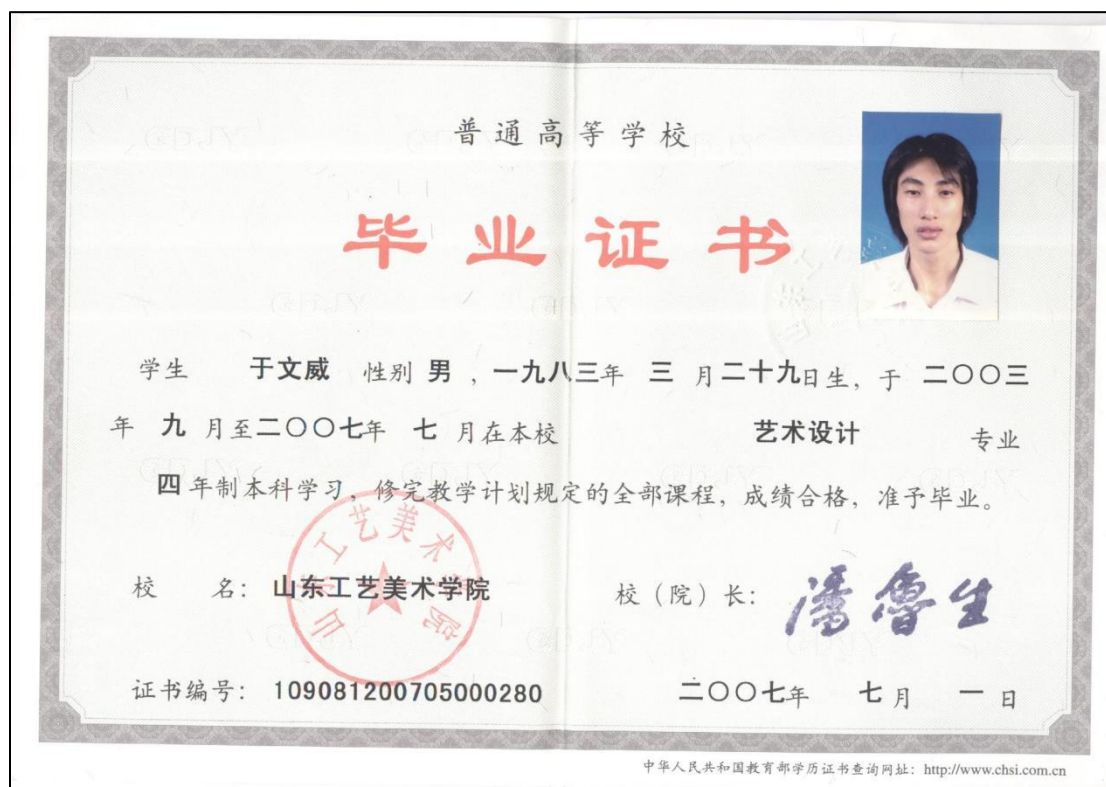 普通高等学校
毕业证书
学生 于文威 性别 男 ，一九八三年 三 月二十九日生，于 二〇〇三
年 九 月至二〇〇七年 七 月在本校 艺术设计 专业
四 年制本科学习，修完教学计划规定的全部课程，成绩合格，准予毕业。
山东工艺美术学院
校 名：山东工艺美术学院 校（院）长：潘鲁生
证书编号：109081200705000280 二〇〇七年 七 月 一 日
中华人民共和国教育部学历证书查询网址：http://www.chsi.com.cn